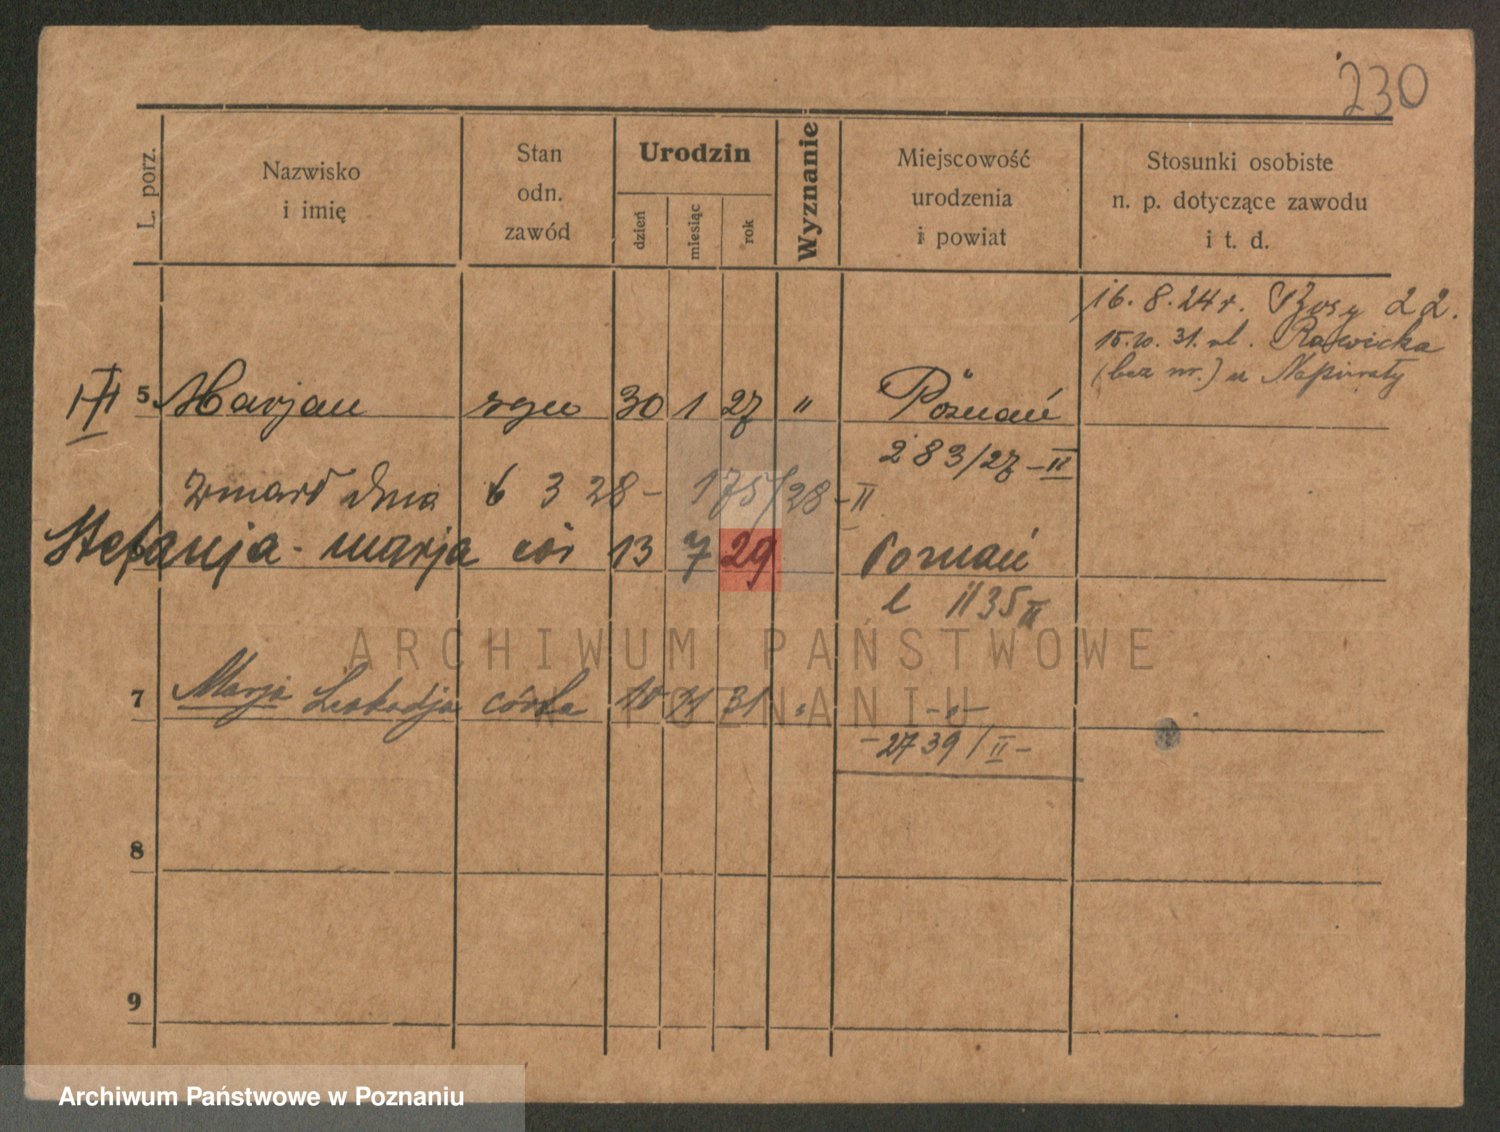 230
L. porz.
Nazwisko
i imię
Stan
odn.
zawód
Urodzin
dzień
miesiąc
rok
Wyznanie
Miejscowość
urodzenia
i powiat
Stosunki osobiste
n. p. dotyczące zawodu
i t. d.
16. 8. 24 r. 22.
15. 10. 31. ul. Rawicka
(bez nr.) u
5 Marjan syn 30 1 27 " Poznań
283/27-II
zmarł dnia 6 3 28 - 175/28-II
Stefanja-marja cór 13 7 29 Poznań
1135 II
ARCHIWUM PAŃSTWOWE
W POZNANIU
7 Marja Leokadja córka 31 " -"-
-2739/II-
8
9
Archiwum Państwowe w Poznaniu